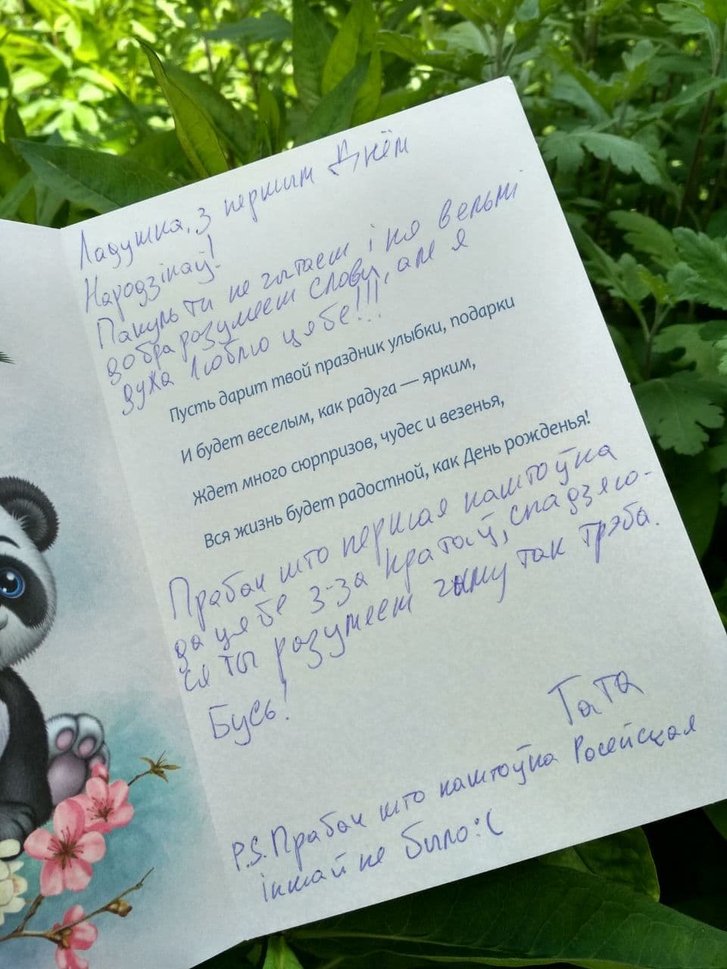 Ладушка, з першым Днём
Народзінаў!
Пакуль ты не чытаеш і не вельмі
добра разумееш словы, але я
дужа люблю цябе!!!
Пусть дарит твой праздник улыбки, подарки
И будет веселым, как радуга — ярким,
Ждет много сюрпризов, чудес и везенья,
Вся жизнь будет радостной, как День рожденья!
Прабач што першая паштоўка
да цябе з-за кратаў, спадзяю-
ся ты разумееш чаму так трэба.
Бусь!
Тата
P.S. Прабач што паштоўка Расейская
іншай не было :(